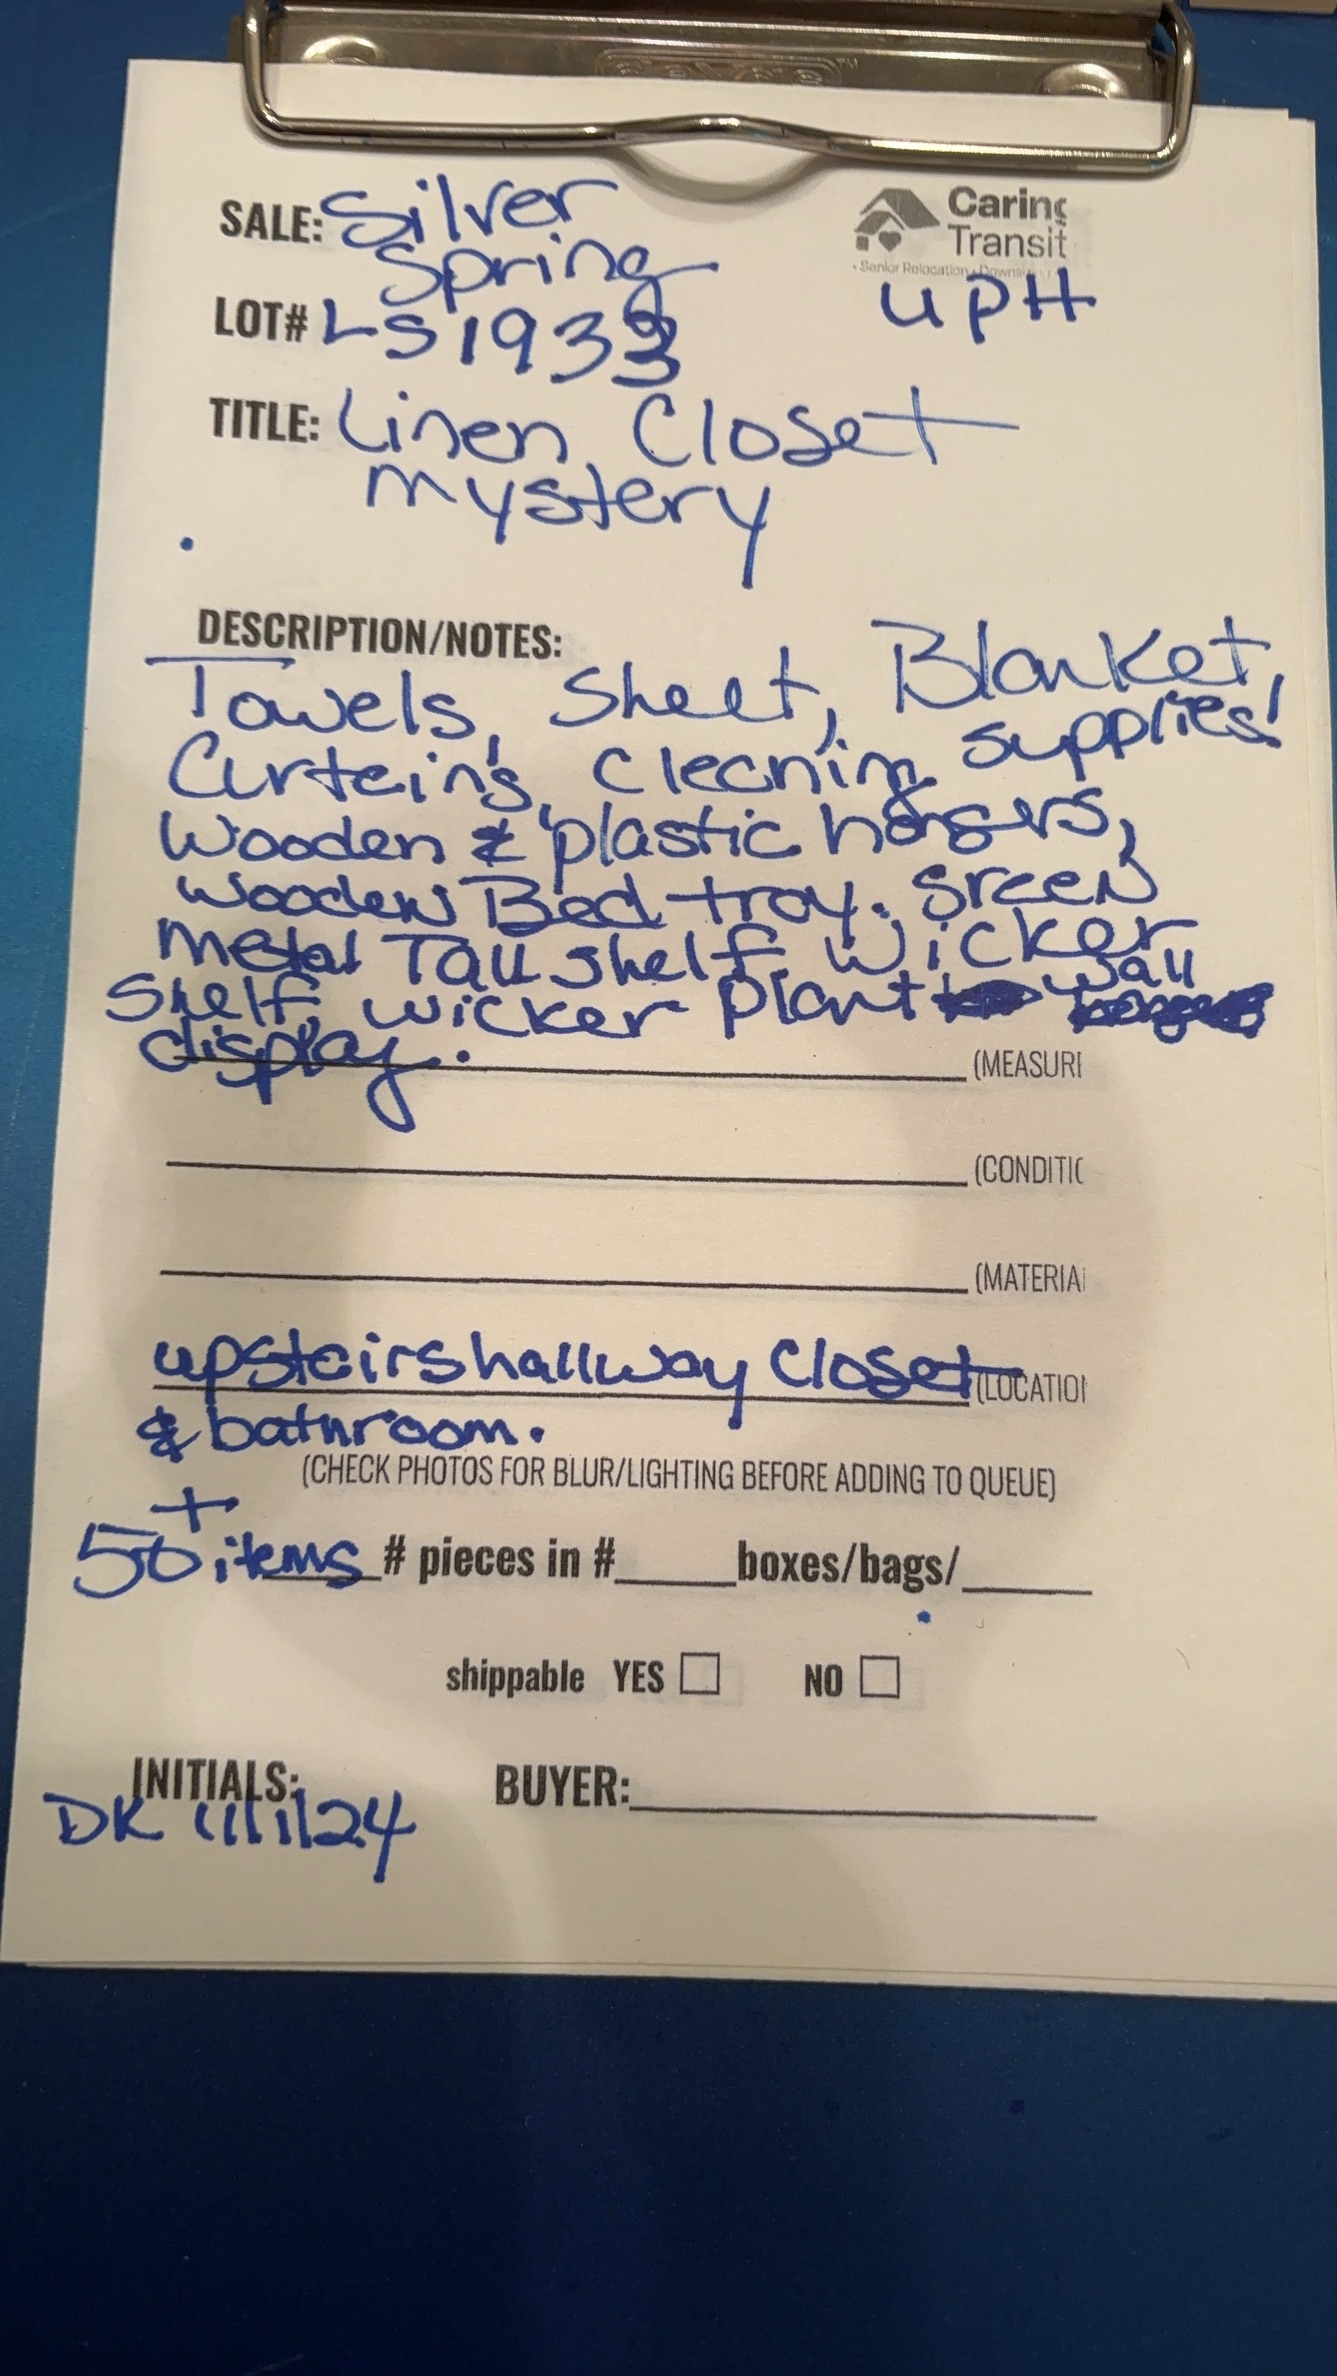 SALE: Silver
Spring
Caring
Transit
• Senior Relocation • Downsi
UPH
LOT# LS1933
TITLE: Linen Closet
mystery
DESCRIPTION/NOTES:
Towels, Sheet, Blanket,
Curtein's, Cleaning supplies!
Wooden & plastic hangers,
wooden Bed tray. green
metal Tall shelf. Wicker
Shelf, wicker plant wall
display.
(MEASURI
(CONDITIC
(MATERIA
upstairs hallway Closet (LOCATION
& bathroom.
(CHECK PHOTOS FOR BLUR/LIGHTING BEFORE ADDING TO QUEUE)
50+ items # pieces in #_____boxes/bags/_____
shippable YES ☐ NO ☐
INITIALS: BUYER:
DK 11/1/24